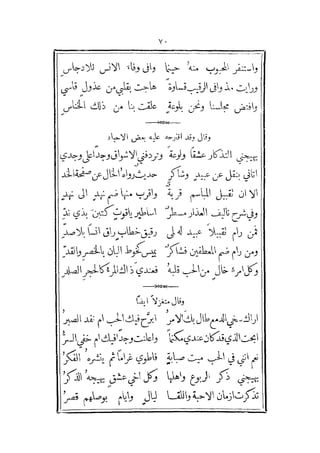 ٧٠
واستنفر المحبوب منه حينما وافى وفاء الانس تلادجاس
ورايت مذ وافى الرقيب قساوة هاجت بقلبي من عذول قاسي
وافتض مجلسنا ونحن بلوعة علقت بنا من ذلك الخناس
وقال وقد اقترحه عليه بعض الاحباء
يهيجني التذكار عشقا ولوعة وتردفني الاشواق وجدا على وجدي
اتاني بنقل عن عبير وشاكر حديث رواه الخال عن صفحة الخد
الا ان تقبيل المباسم قربة واقرب منها ضم نهد الى نهد
وفي شرح تاليف العذار مسطر اساطير ياقوت كتبن بذي ند
فمن رام تقبيلا عبيد له لمى رقيق خطاب راق انسا بلا صد
ومن رام ضم المعطفين فشاكر يميس كخوط البان بالخصر والقد
وكل امرء خال من الحب قلبه فعندي ذاك المرء كالحجر الصلد
وقال متغزلا ايضا
اراك خلي الدمع طال بك الامر ابرح فيك الحب ام نفد الصبر
ابحت الذي قد كان عندي مكتما واعلنت وجدا فيك ام خفي السر
نعم انني في الحب ميت صبابة فاطوي غراما ثم ينشره الفكر
يهيجني ذكر الربوع واهلها وكل اخي عشق يهيجه الذكر
تذكرت ازمان الاحبة واللقا ليال وايام بوصلهم قصر